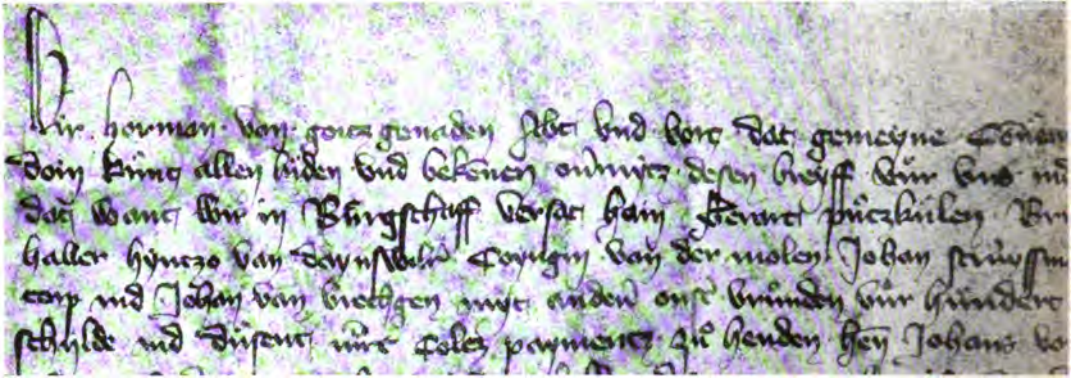 Wir herman van gotz genaden Abt vnd vort dat gemeyne Conuen
doin kunt allen luden vnd bekennen ouermitz desen breyff vur vns ind
dat want wir in Burgschaff versat hain Gerart putzkulen
haller hyntzo van Coyngin van der molen Johan
torp ind Johan van vrechgen myt anderen onsen vrunden vur hundert
schylde ind dusent mrc Colcz payment zu henden hern Johans vo